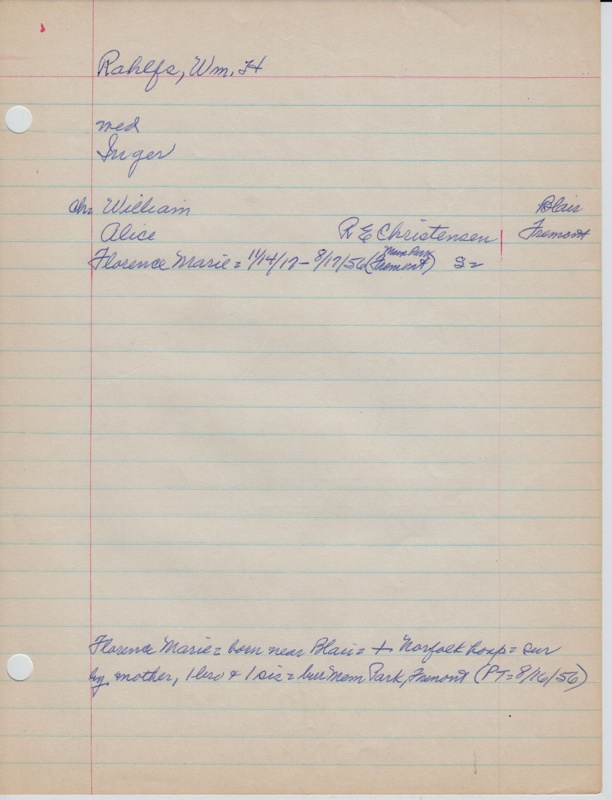 Rahlfs, Wm. H
med
Inger
Chr William Blair
Alice R E Christensen Fremont
Florence Marie = 11/14/17 - 8/17/56 (Mem Park Fremont) S=
Florence Marie = born near Blair = + Norfolk hosp = sur
by mother, 1 bro & 1 sis = bur Mem Park, Fremont (PT = 8/16/56)